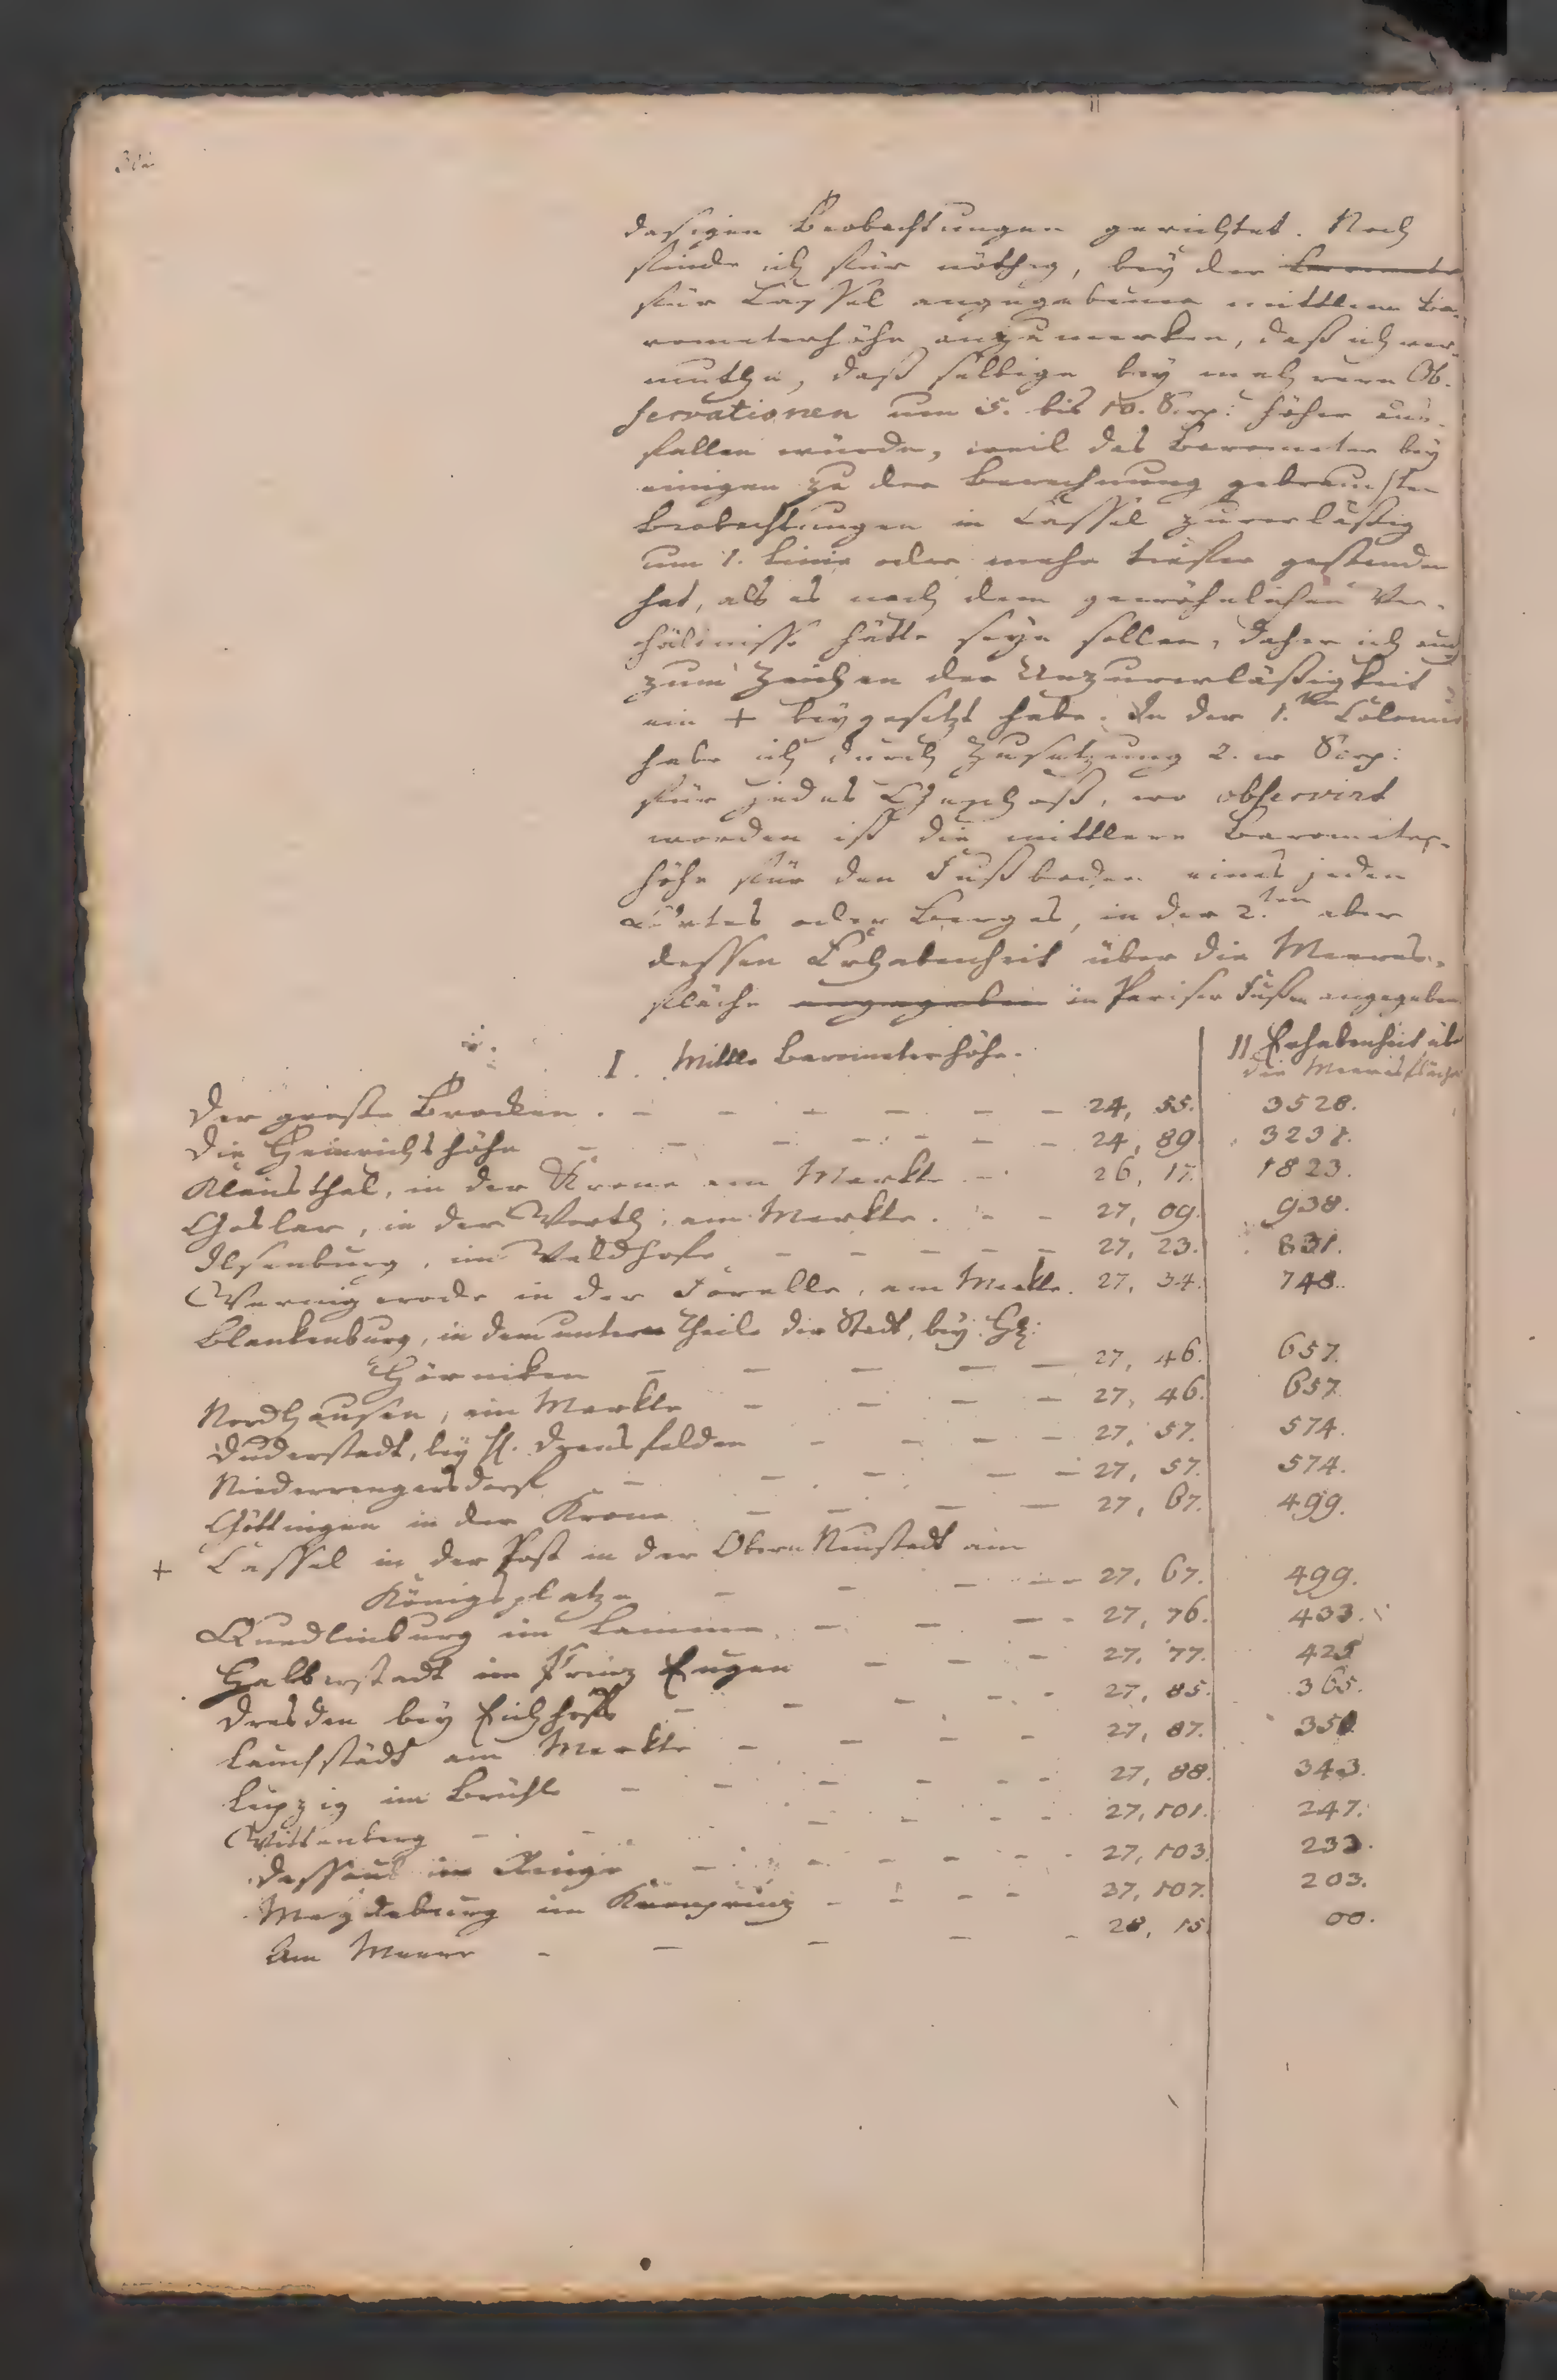 dasigen Beobachtungen gerichtet. Noch
finde ich für nöthig, bey der
für Cassel angegebene mittlern Ba-
rometerhöhe anzumerken, daß ich ver-
muthe, daß selbige bey mehrern Ob-
servationen um 5. bis 10. Scrp: höher aus-
fallen würde, weil das Barometer bey
einigen zu der Berechnung gebrauchten
Beobachtungen in Cassel zuverläßig
um 1. Linie oder mehr tiefer gestanden
hat, als es nach dem gewöhnlichen Ver-
hältnisse hätte seyn sollen, daher ich auch
zum Zeichen der Unzuverläßigkeit
ein + beygesetzt habe. In der 1.ten Colonne
habe ich durch Zusetzung 2. Scrp:
für jedes Geschoß, wo observirt
worden ist die mittlere Barometer-
höhe für den Fußboden eines jeden
Ortes oder Berges, in der 2.ten aber
dessen Erhabenheit über die Meeres-
fläche angegeben in Pariser Fußen angegeben.
I. Mittle Barometerhöhe.
II Erhabenheit über
die Meeresfläche
Der große Brocken. - - - - - - 24, 55. 3528.
Die Heinrichshöhe - - - - - - 24, 89. 3231.
Klausthal, in der Krone am Markte - 26, 17. 1823.
Goslar, in der Worth, am Markte. - - 27, 09. 938.
Ilsenburg, im Waldhofe - - - - - 27, 23. 831.
Wernigerode in der Forelle, am Markte. 27, 34. 748.
Blankenburg, in dem untern Theile der Stadt, bey
Hörniken - - - - - 27, 46. 657.
Nordhausen, am Markte - - - - 27, 46. 657.
Duderstadt, bey H. - - - - 27, 57. 574.
Niederrengersdorf - - - - - 27, 57. 574.
Göttingen in der Krone - - - - 27, 67. 499.
+ Cassel in der Post in der Obern Neustadt am
Königsplatze - - - - 27, 67. 499.
Quedlinburg im Lamme - - - - 27, 76. 433.
Halberstadt im Prinz Eugen - - - 27, 77. 425
Dresden bey Eichhoffs - - - - - 27, 85. 365.
Lauchstädt am Markte - - - - 27, 87. 350
Leipzig im Brühle - - - - - - 27, 88. 343.
Wittenberg - - - - - 27, 101. 247.
Dessau im Ringe - - - - - - 27, 103. 233.
Magdeburg im Kronprinz - - - - 27, 107. 203.
Am Meere - - - - - 28, 15. 00.